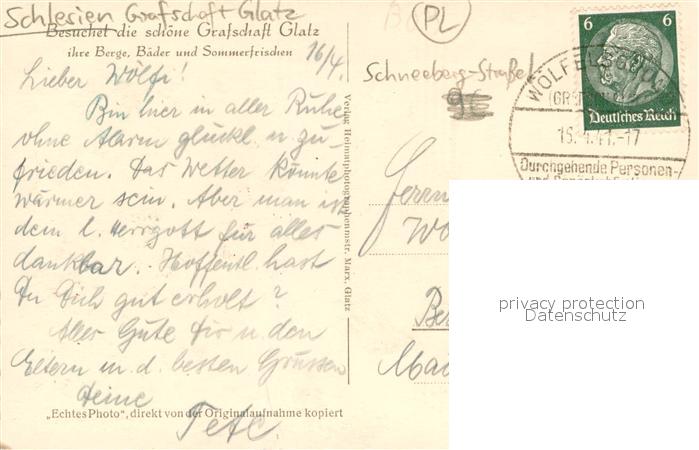 Schlesien Grafschaft Glatz
Besuchet die schöne Grafschaft Glatz
ihre Berge, Bäder und Sommerfrischen
16/4.
Lieber Wölfi!
Bin hier in aller Ruhe
ohne Alarm glückl. u. zu-
frieden. Das Wetter könnte
wärmer sein. Aber man ist
dem l. Herrgott für alles
dankbar. Hoffentl. hast
Du Dich gut erholt?
Alles Gute Dir u. den
Eltern m. d. besten Grüssen
Deine
„Echtes Photo", direkt von der Originalaufnahme kopiert
Verlag Heimatphotographenmstr. Marx, Glatz
PL
Schneeberg-Straße!
6 6
Deutsches Reich
WÖLFELS
(GR
-17
Durchgehende Personen-
Herrn
Wö
Be
Mai
privacy protection
Datenschutz